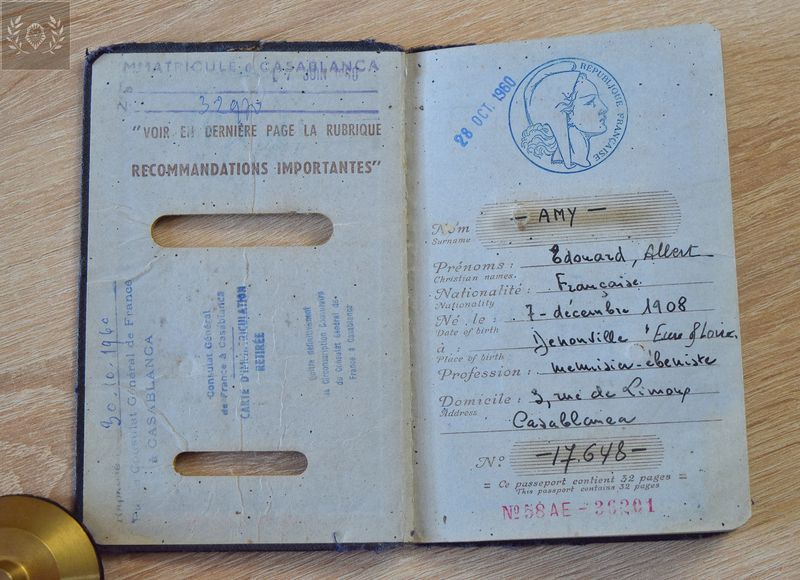 IMMATRICULÉ à CASABLANCA
17 JUIN 1960
32970
"VOIR EN DERNIÈRE PAGE LA RUBRIQUE
RECOMMANDATIONS IMPORTANTES"
30.10.1960
Consulat Général de France
à CASABLANCA
Consulat Général
de France à Casablanca
CARTE D'IMMATRICULATION
RETIRÉE
Quitte définitivement
la Circonscription Consulaire
du Consulat Général de
France à Casablanca
28 OCT. 1960
RÉPUBLIQUE FRANÇAISE
Nom - AMY -
Surname
Prénoms : Edouard, Albert
Christian names.
Nationalité : Française
Nationality
Né le : 7 - décembre 1908
Date of birth
à : Denonville "Eure & Loire"
Place of birth
Profession : menuisier-ébéniste
Domicile : 3, rue de Limoux
Address
Casablanca
N° -17.648-
= Ce passeport contient 32 pages =
This passport contains 32 pages
N° 58AE - 36201